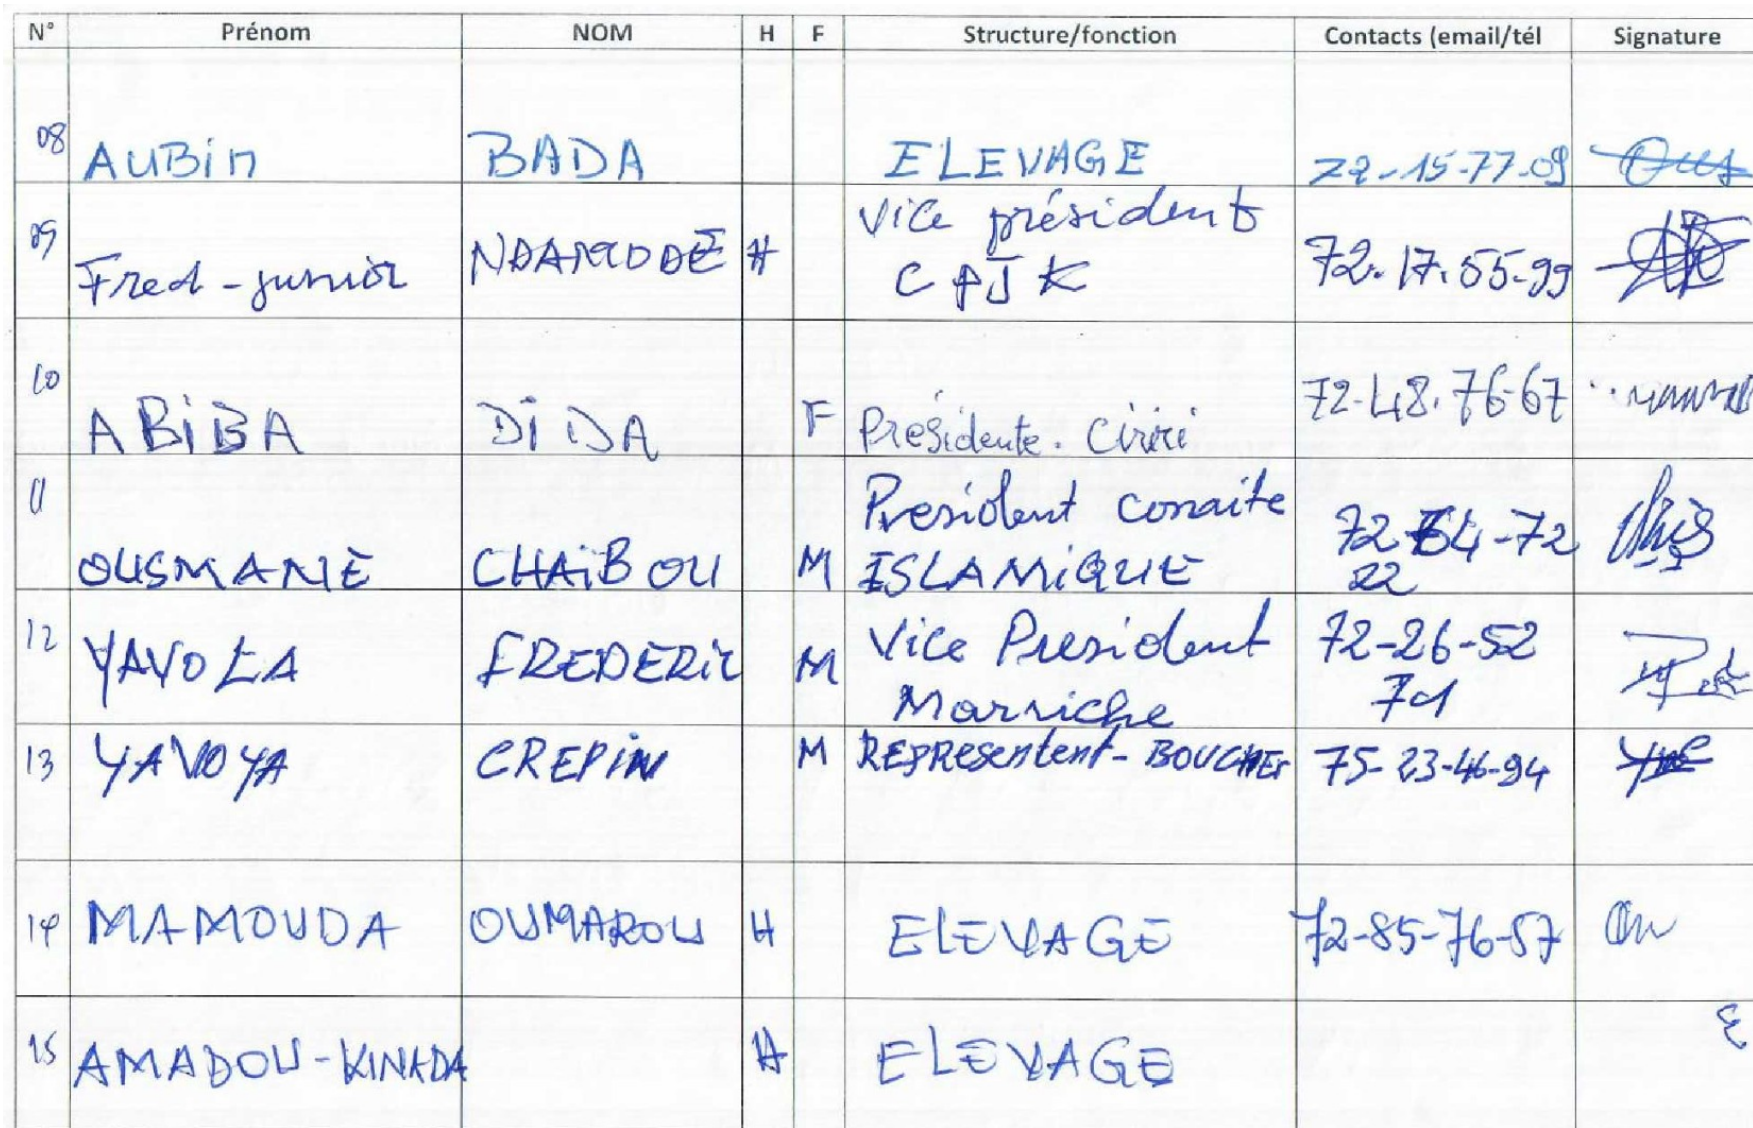 N° Prénom NOM H F Structure/fonction Contacts (email/tél Signature
08 AUBin BADA ELEVAGE 72-15-77-09
09 Fred-junior H Vice président CAJK 72.17.55-99
10 ABiBA DiDA F Présidente. 72-48.76-67
11 OUSMANE CHAiBOU M President ISLAMiQUE 72-64-72
22
12 YAVOLA FREDERIC M Vice President 72-26-52
71
13 YAVOYA CREPIN M REPResentent-BOUCHER 75-23-46-94
14 MAMOUDA OUMAROU H ELEVAGE 72-85-76-57
15 AMADOU-KINADA H ELEVAGE